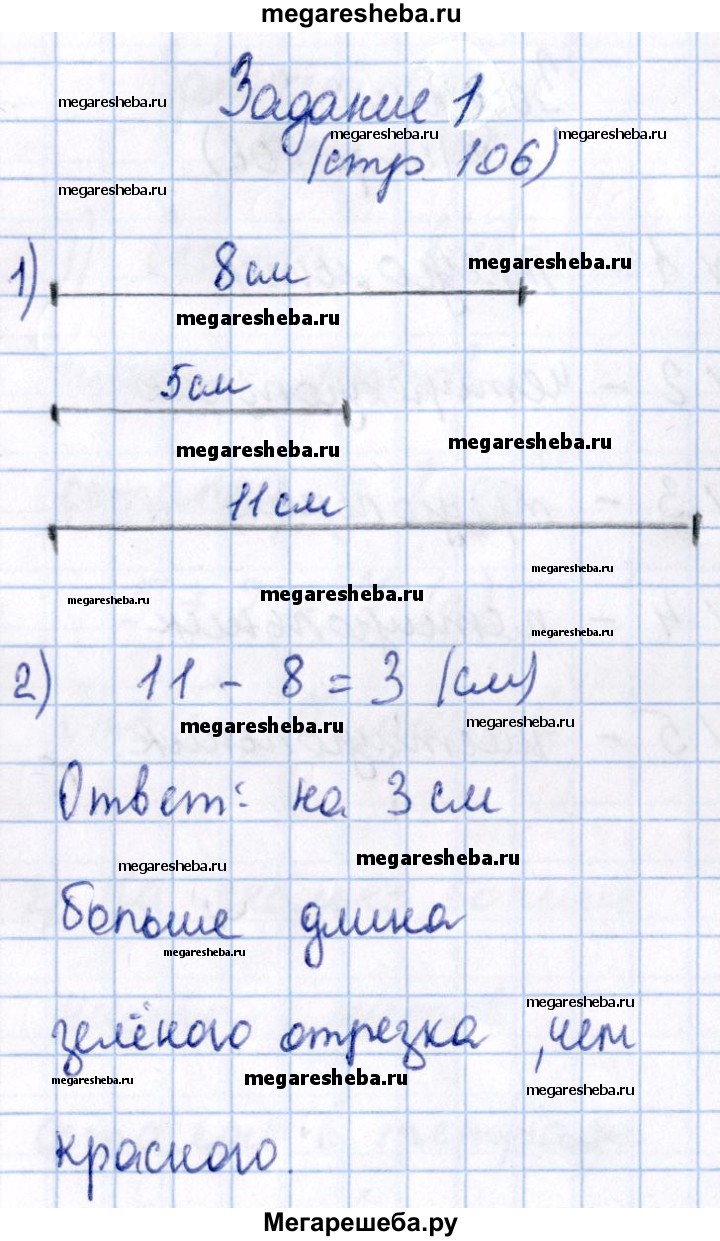 megaresheba.ru
Задание 1
megaresheba.ru
megaresheba.ru megaresheba.ru
(стр. 106)
megaresheba.ru
1) 8 см
megaresheba.ru
megaresheba.ru
5 см
megaresheba.ru
megaresheba.ru
11 см
megaresheba.ru
megaresheba.ru
megaresheba.ru
megaresheba.ru
2) 11 - 8 = 3 (см)
megaresheba.ru
megaresheba.ru
Ответ: на 3 см
megaresheba.ru
megaresheba.ru
больше длина
megaresheba.ru
megaresheba.ru
зелёного отрезка, чем
megaresheba.ru
megaresheba.ru
megaresheba.ru
красного.
Мегарешеба.ру